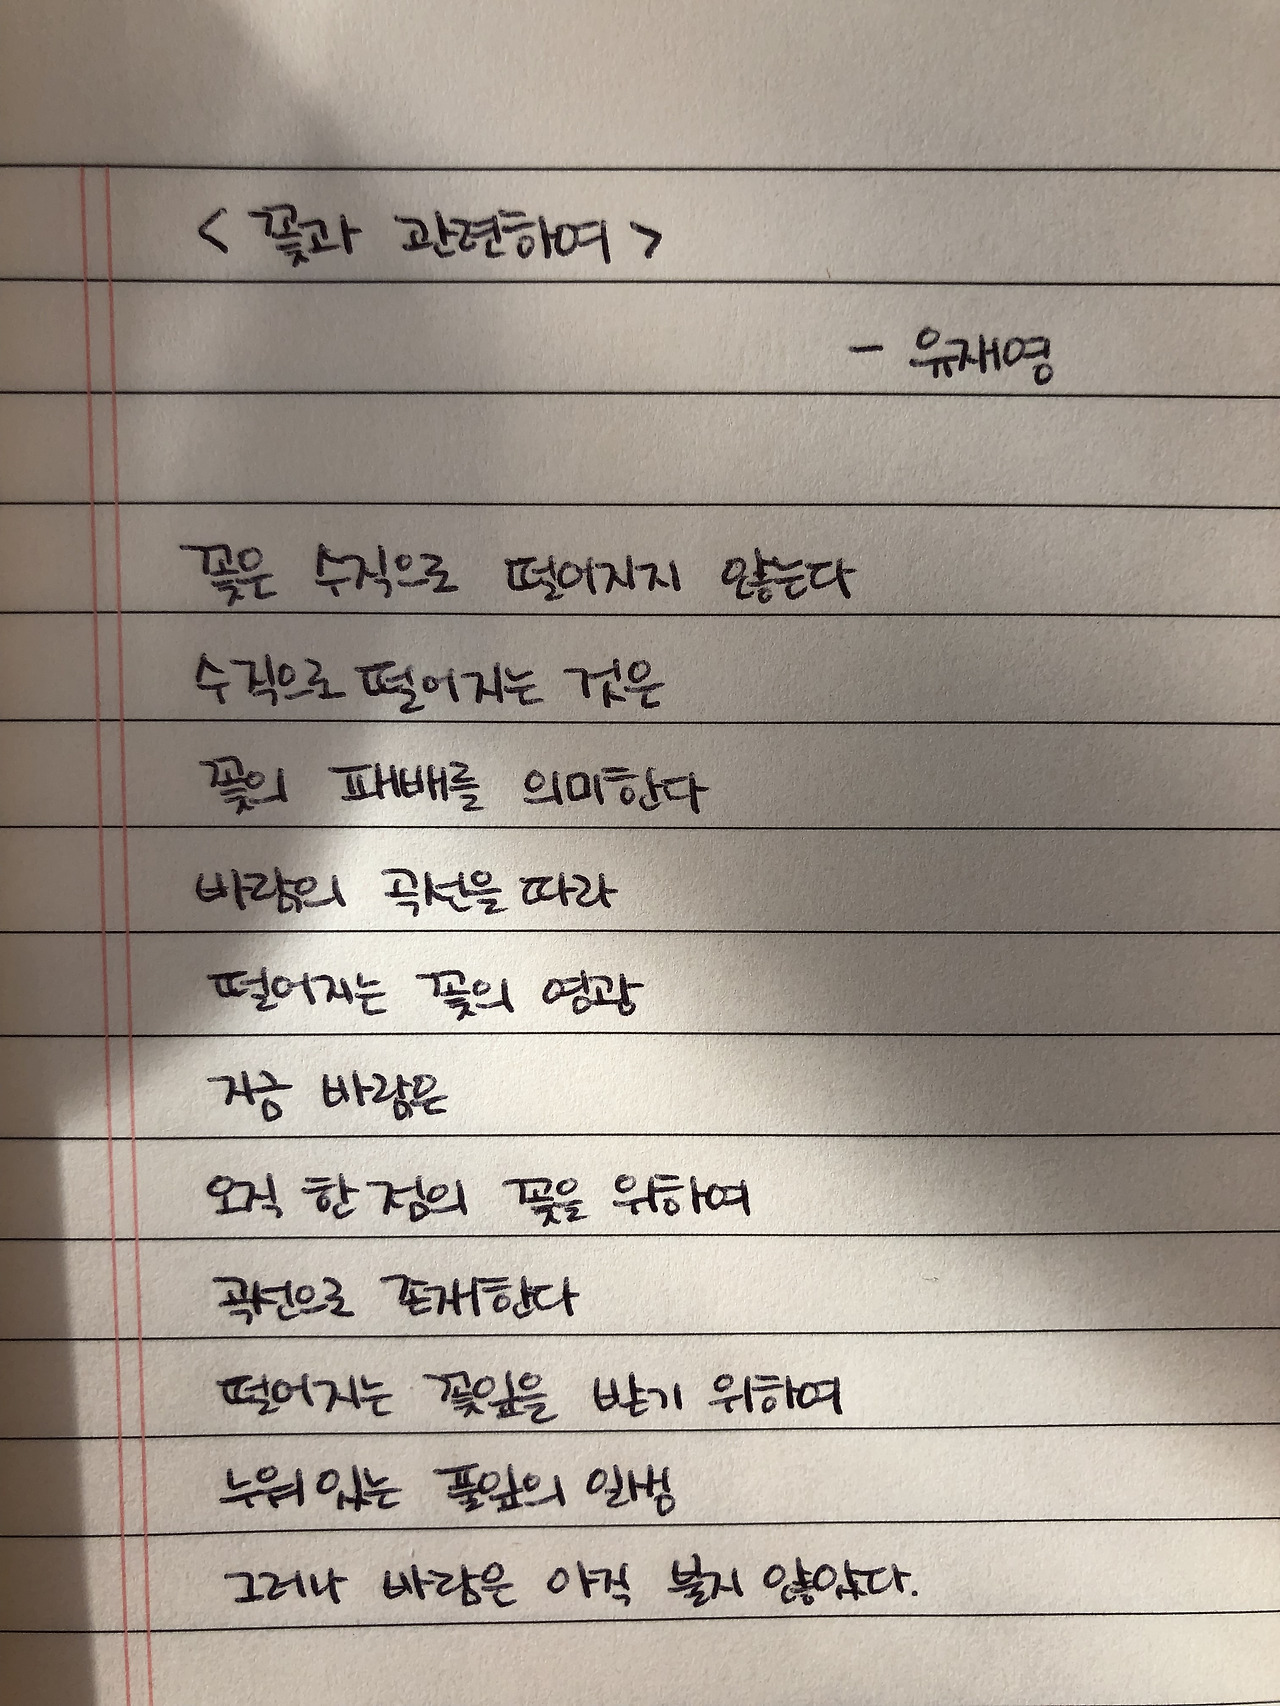 < 꽃과 관련하여 >
- 유재영
꽃은 수직으로 떨어지지 않는다
수직으로 떨어지는 것은
꽃의 패배를 의미한다
바람의 곡선을 따라
떨어지는 꽃의 영광
지금 바람은
오직 한 점의 꽃을 위하여
곡선으로 존재한다
떨어지는 꽃잎을 받기 위하여
누워 있는 풀잎의 일생
그러나 바람은 아직 불지 않았다.